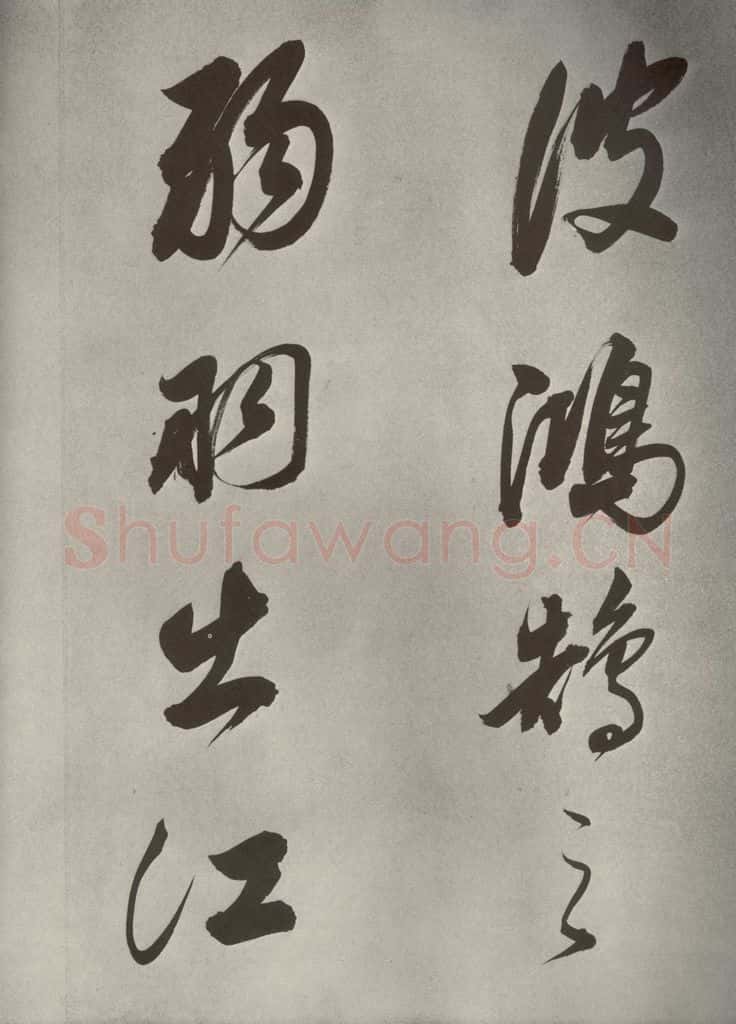 波鴻鵠之
弱羽出江
Shufawang.CN